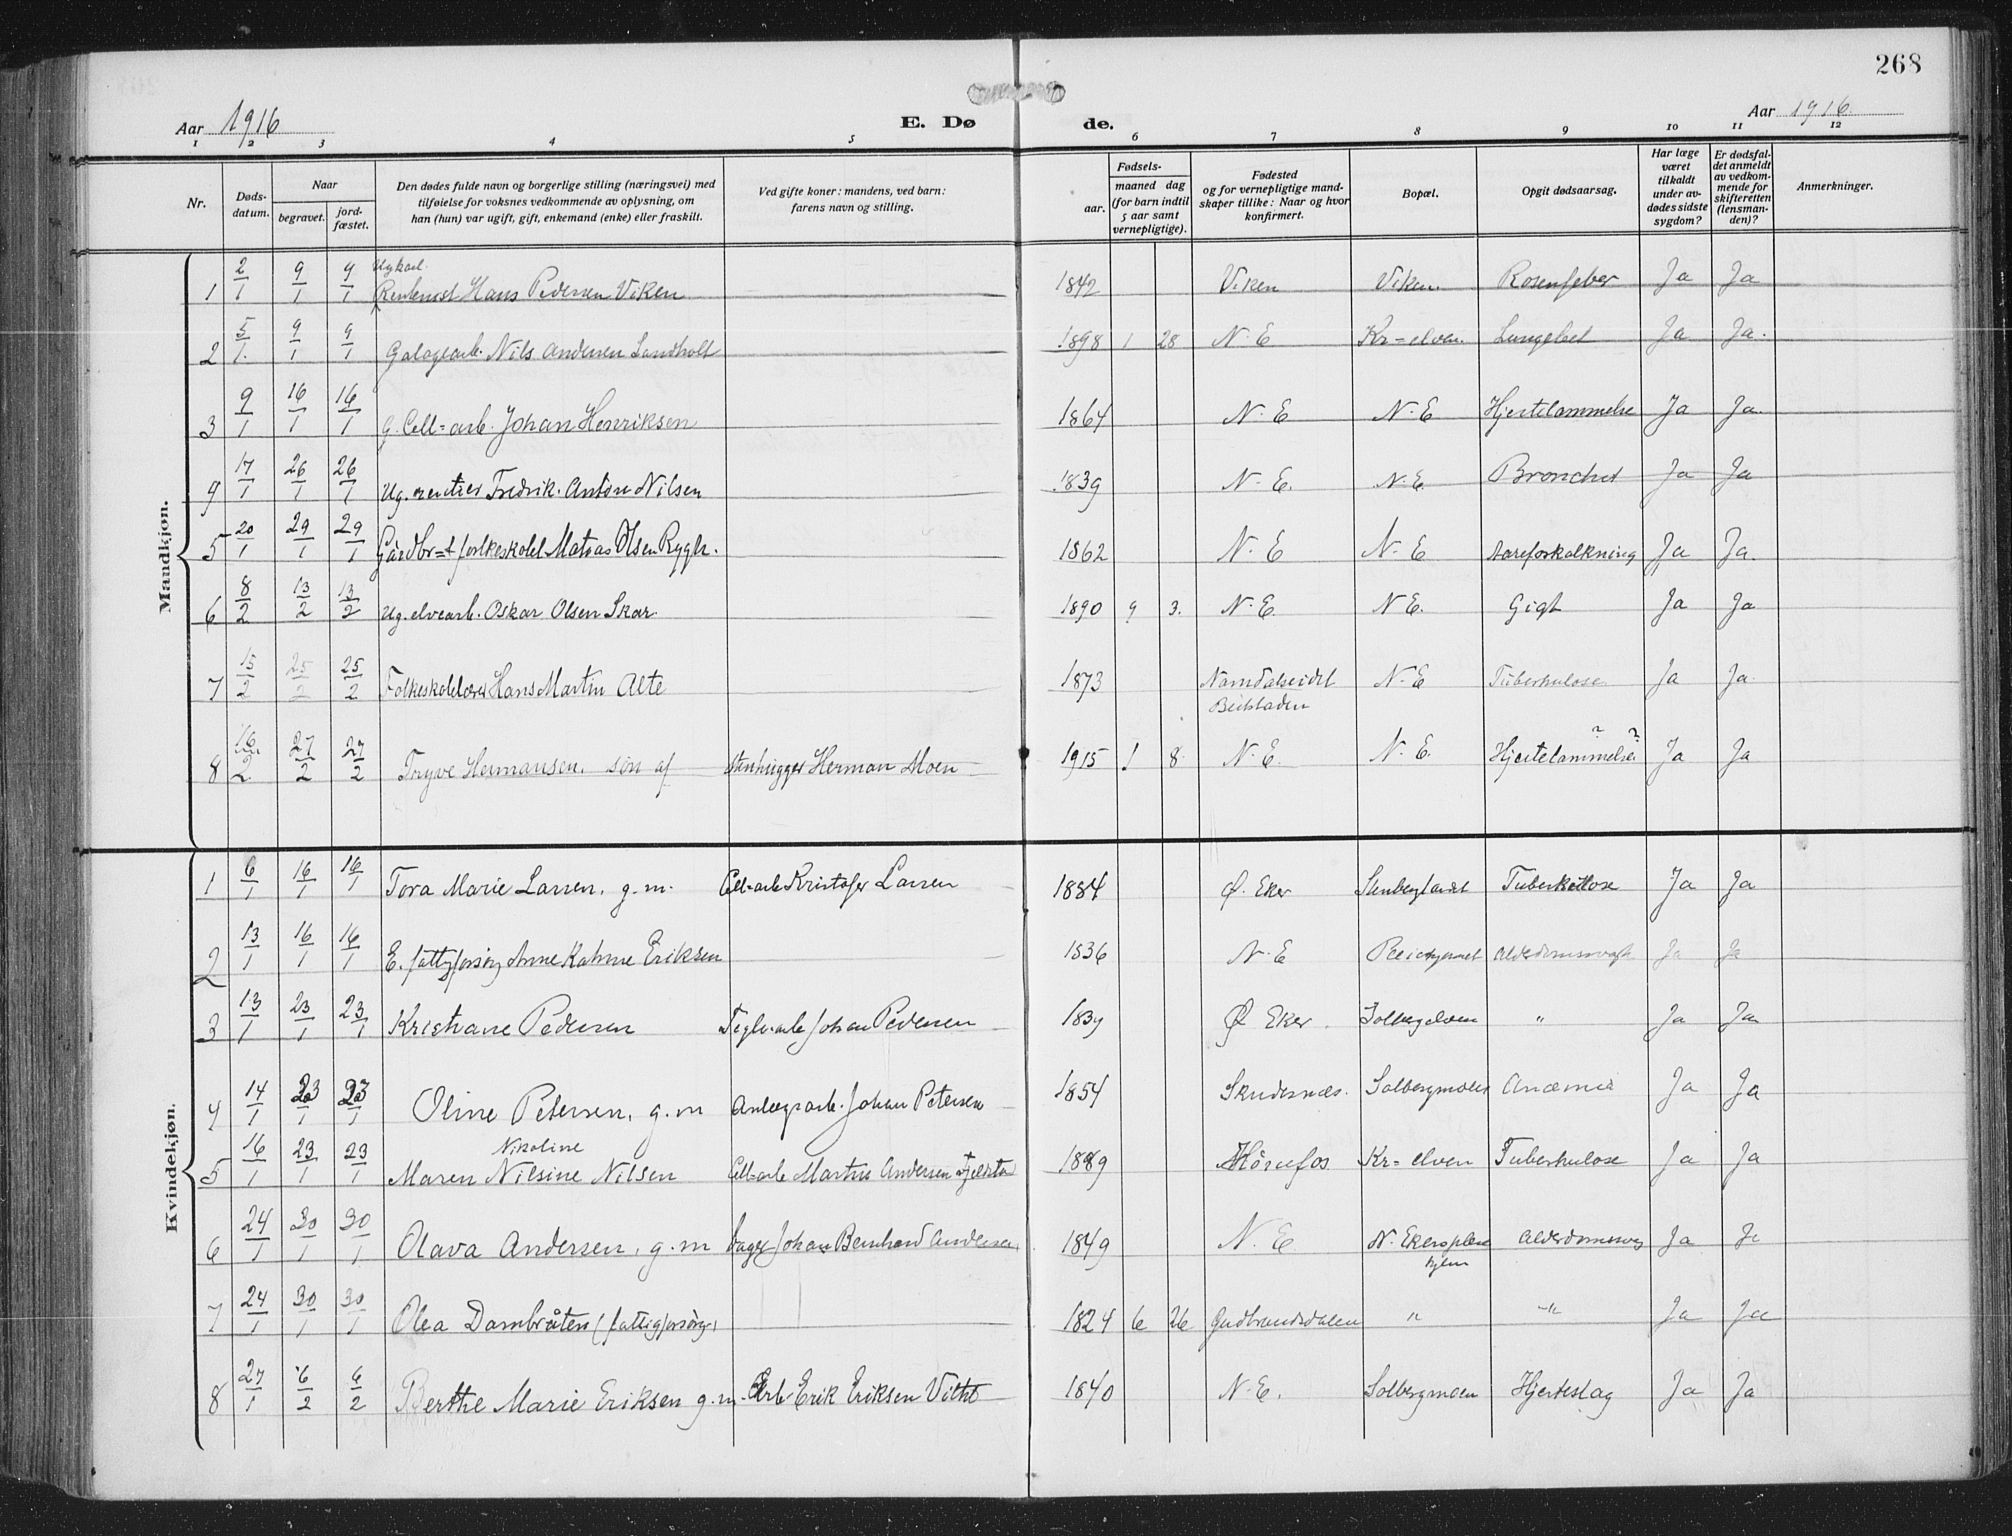 268
Aar 1916 E. Døde. Aar 1916.
1 2 3 4 5 6 7 8 9 10 11 12
Nr. Døds-datum. Naar begravet. jord-fæstet. Den dødes fulde navn og borgerlige stilling (næringsvei) med tilføielse for voksnes vedkommende av oplysning, om han (hun) var ugift, gift, enkemand (enke) eller fraskilt. Ved gifte koner: mandens, ved barn: farens navn og stilling. Fødsels- aar. maaned dag (for barn indtil 5 aar samt vernepligtige). Fødested og for vernepligtige mand-skaper tillike: Naar og hvor konfirmert. Bopæl. Opgit dødsaarsag. Har læge været tilkaldt under av-dødes sidste sygdom? Er dødsfal-det anmeldt av vedkom-mende for skifteretten (lensman-den)? Anmerkninger.
Mandkjøn.
Ugkarl.
1 2/1 9/1 9/1 Hans Pedersen Viken 1842 Viken Viken. Rosenfeber Ja Ja
2 5/1 9/1 9/1 Nils Andersen Sandholt 1898 1 28 N. E Kr=elven. Ja Ja.
3 9/1 16/1 16/1 G. Cell=arb. Johan Henriksen 1864 N. E N. E Hjertelammelse Ja Ja.
4 17/1 26/1 26/1 Ug. rentier Fredrik Anton Nilsen 1839 N. E. N. E. Bronchit Ja Ja
5 20/1 29/1 29/1 Gårdbr=+ Olsen Rygh. 1862 N. E N. E Aareforkalkning Ja Ja.
6 8/2 13/2 13/2 Ug. elvearb. Oskar Olsen Skar. 1890 9 3. N. E. N E. Gigt Ja Ja
7 15/2 25/2 25/2 Folkeskolelærer Hans Martin Alte 1873 Namdalseidet Beitstaden N. E Tuberkulose Ja Ja
8 16/2 27/2 27/2 Trygve Hermansen. søn af stenhugger Herman Moen 1915 1 8 N. E. N. E. Hjertelammelse ? ? Ja Ja
Kvindekjøn.
1 6/1 16/1 16/1 Tora Marie Larsen. g. m. Cell=arb Kristofer Larsen 1884 Ø. Eker Tuberkulose Ja Ja
2 13/1 16/1 16/1 E. fattigforsørg Anne Eriksen 1836 N. E Ja Ja
3 13/1 23/1 23/1 Kristiane Pedersen Teglv.arb Johan Pedersen Ø Eker. Solbergelven " Ja Ja
4 14/1 23/1 23/1 Oline Petersen, g. m Anlægsarb. Johan Petersen 1854 Skudesnæs. Solbergmoen Anæmia Ja Ja
Nikoline
5 16/1 23/1 23/1 Maren Nilsine Nilsen Cell=arb Martin Andersen 1889 Hönefos Kr= elven Tuberkulose Ja Ja
6 24/1 30/1 30/1 Olava Andersen. g. m Johan Bernhard Andersen 1849 N. E N. Ekers pleiehjem Ja Ja
7 24/1 30/1 30/1 Olea Dambråten (fattigforsörg) 1824 6 26 Gudbrandsdalen " " Ja Ja
8 27/1 6/2 6/2 Berthe Marie Eriksen g. m. Arb. Erik Eriksen 1840 N. E. Solbergmoen Hjerteslag Ja Ja